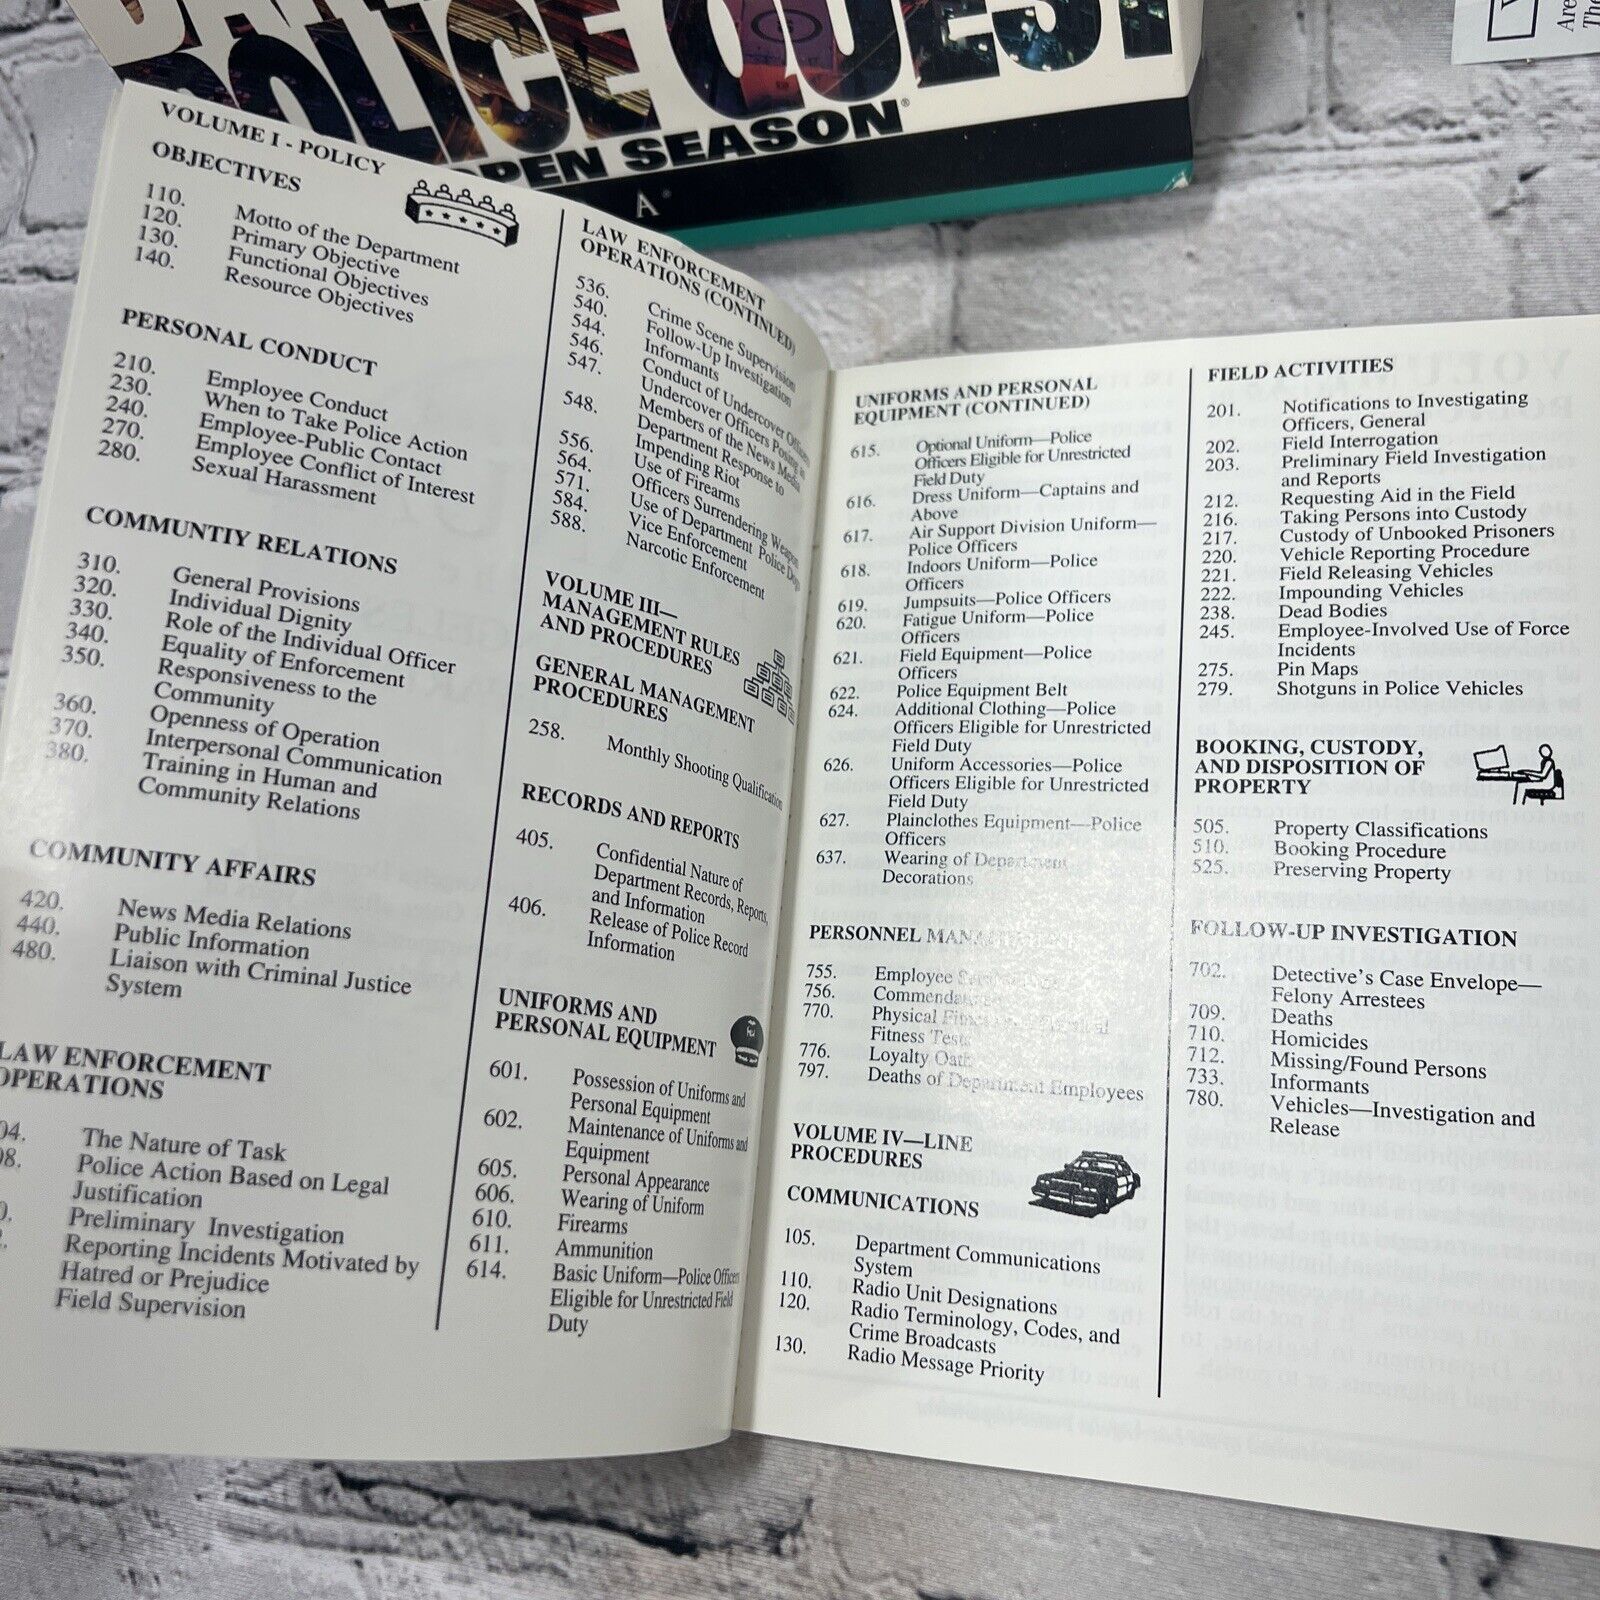 POLICE QUEST
OPEN SEASON®
VOLUME I - POLICY
OBJECTIVES
110. Motto of the Department
120. Primary Objective
130. Functional Objectives
140. Resource Objectives
PERSONAL CONDUCT
210. Employee Conduct
230. When to Take Police Action
240. Employee-Public Contact
270. Employee Conflict of Interest
280. Sexual Harassment
COMMUNTIY RELATIONS
310. General Provisions
320. Individual Dignity
330. Role of the Individual Officer
340. Equality of Enforcement
350. Responsiveness to the
Community
360. Openness of Operation
370. Interpersonal Communication
380. Training in Human and
Community Relations
COMMUNITY AFFAIRS
420. News Media Relations
440. Public Information
480. Liaison with Criminal Justice
System
LAW ENFORCEMENT
OPERATIONS
04. The Nature of Task
08. Police Action Based on Legal
Justification
Preliminary Investigation
Reporting Incidents Motivated by
Hatred or Prejudice
Field Supervision
LAW ENFORCEMENT
OPERATIONS (CONTINUED)
536. Crime Scene Supervision
540. Follow-Up Investigation
544. Informants
546. Conduct of Undercover Officers
547. Undercover Officers Posing as
Members of the News Media
548. Department Response to
Impending Riot
556. Use of Firearms
564. Officers Surrendering Weapon
571. Use of Department Police Dogs
584. Vice Enforcement
588. Narcotic Enforcement
VOLUME III—
MANAGEMENT RULES
AND PROCEDURES
GENERAL MANAGEMENT
PROCEDURES
258. Monthly Shooting Qualification
RECORDS AND REPORTS
405. Confidential Nature of
Department Records, Reports,
and Information
406. Release of Police Record
Information
UNIFORMS AND
PERSONAL EQUIPMENT
601. Possession of Uniforms and
Personal Equipment
602. Maintenance of Uniforms and
Equipment
605. Personal Appearance
606. Wearing of Uniform
610. Firearms
611. Ammunition
614. Basic Uniform—Police Officers
Eligible for Unrestricted Field
Duty
UNIFORMS AND PERSONAL
EQUIPMENT (CONTINUED)
615. Optional Uniform—Police
Officers Eligible for Unrestricted
Field Duty
616. Dress Uniform—Captains and
Above
617. Air Support Division Uniform—
Police Officers
618. Indoors Uniform—Police
Officers
619. Jumpsuits—Police Officers
620. Fatigue Uniform—Police
Officers
621. Field Equipment—Police
Officers
622. Police Equipment Belt
624. Additional Clothing—Police
Officers Eligible for Unrestricted
Field Duty
626. Uniform Accessories—Police
Officers Eligible for Unrestricted
Field Duty
627. Plainclothes Equipment—Police
Officers
637. Wearing of Department
Decorations
PERSONNEL
755. Employee
756.
770. Physical
Fitness Tests
776. Loyalty Oath
797. Deaths of Department Employees
VOLUME IV—LINE
PROCEDURES
COMMUNICATIONS
105. Department Communications
System
110. Radio Unit Designations
120. Radio Terminology, Codes, and
Crime Broadcasts
130. Radio Message Priority
FIELD ACTIVITIES
201. Notifications to Investigating
Officers, General
202. Field Interrogation
203. Preliminary Field Investigation
and Reports
212. Requesting Aid in the Field
216. Taking Persons into Custody
217. Custody of Unbooked Prisoners
220. Vehicle Reporting Procedure
221. Field Releasing Vehicles
222. Impounding Vehicles
238. Dead Bodies
245. Employee-Involved Use of Force
Incidents
275. Pin Maps
279. Shotguns in Police Vehicles
BOOKING, CUSTODY,
AND DISPOSITION OF
PROPERTY
505. Property Classifications
510. Booking Procedure
525. Preserving Property
FOLLOW-UP INVESTIGATION
702. Detective's Case Envelope—
Felony Arrestees
709. Deaths
710. Homicides
712. Missing/Found Persons
733. Informants
780. Vehicles—Investigation and
Release